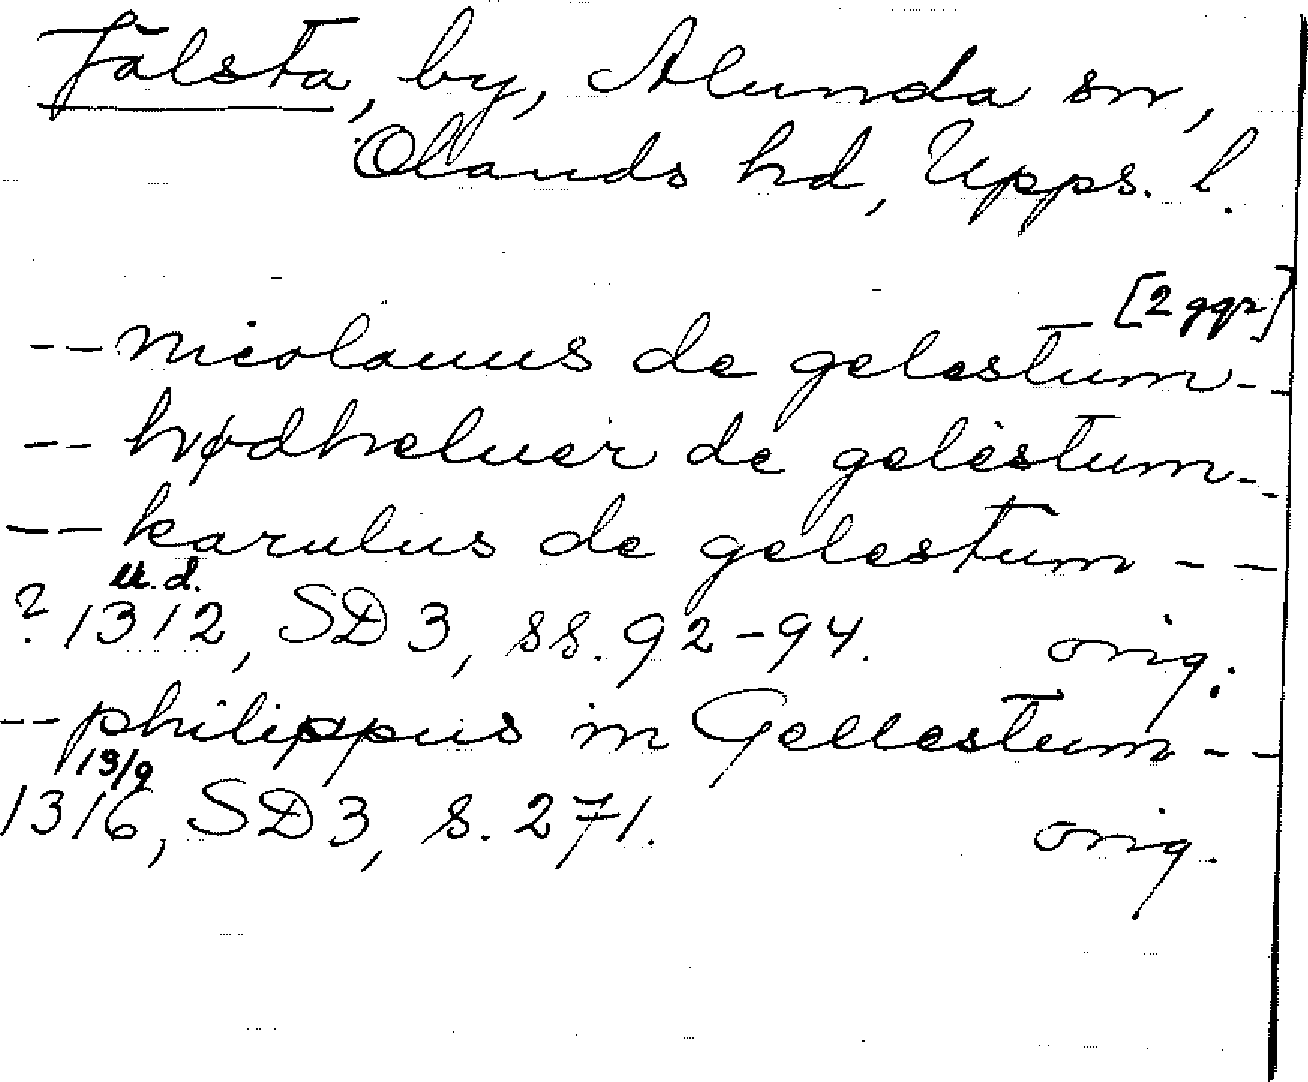 Jälsta, by, Alunda sn,
Olands hd, Upps. l.
[2 ggr]
-- nicolauus de gelestum --
-- hvødheluer de gelestum --
-- karulus de gelestum --
u.d.
? 1312, SD 3, ss. 92-94. orig.
-- philippus in Gellestum --
13/9
1316, SD 3, s. 271. orig.